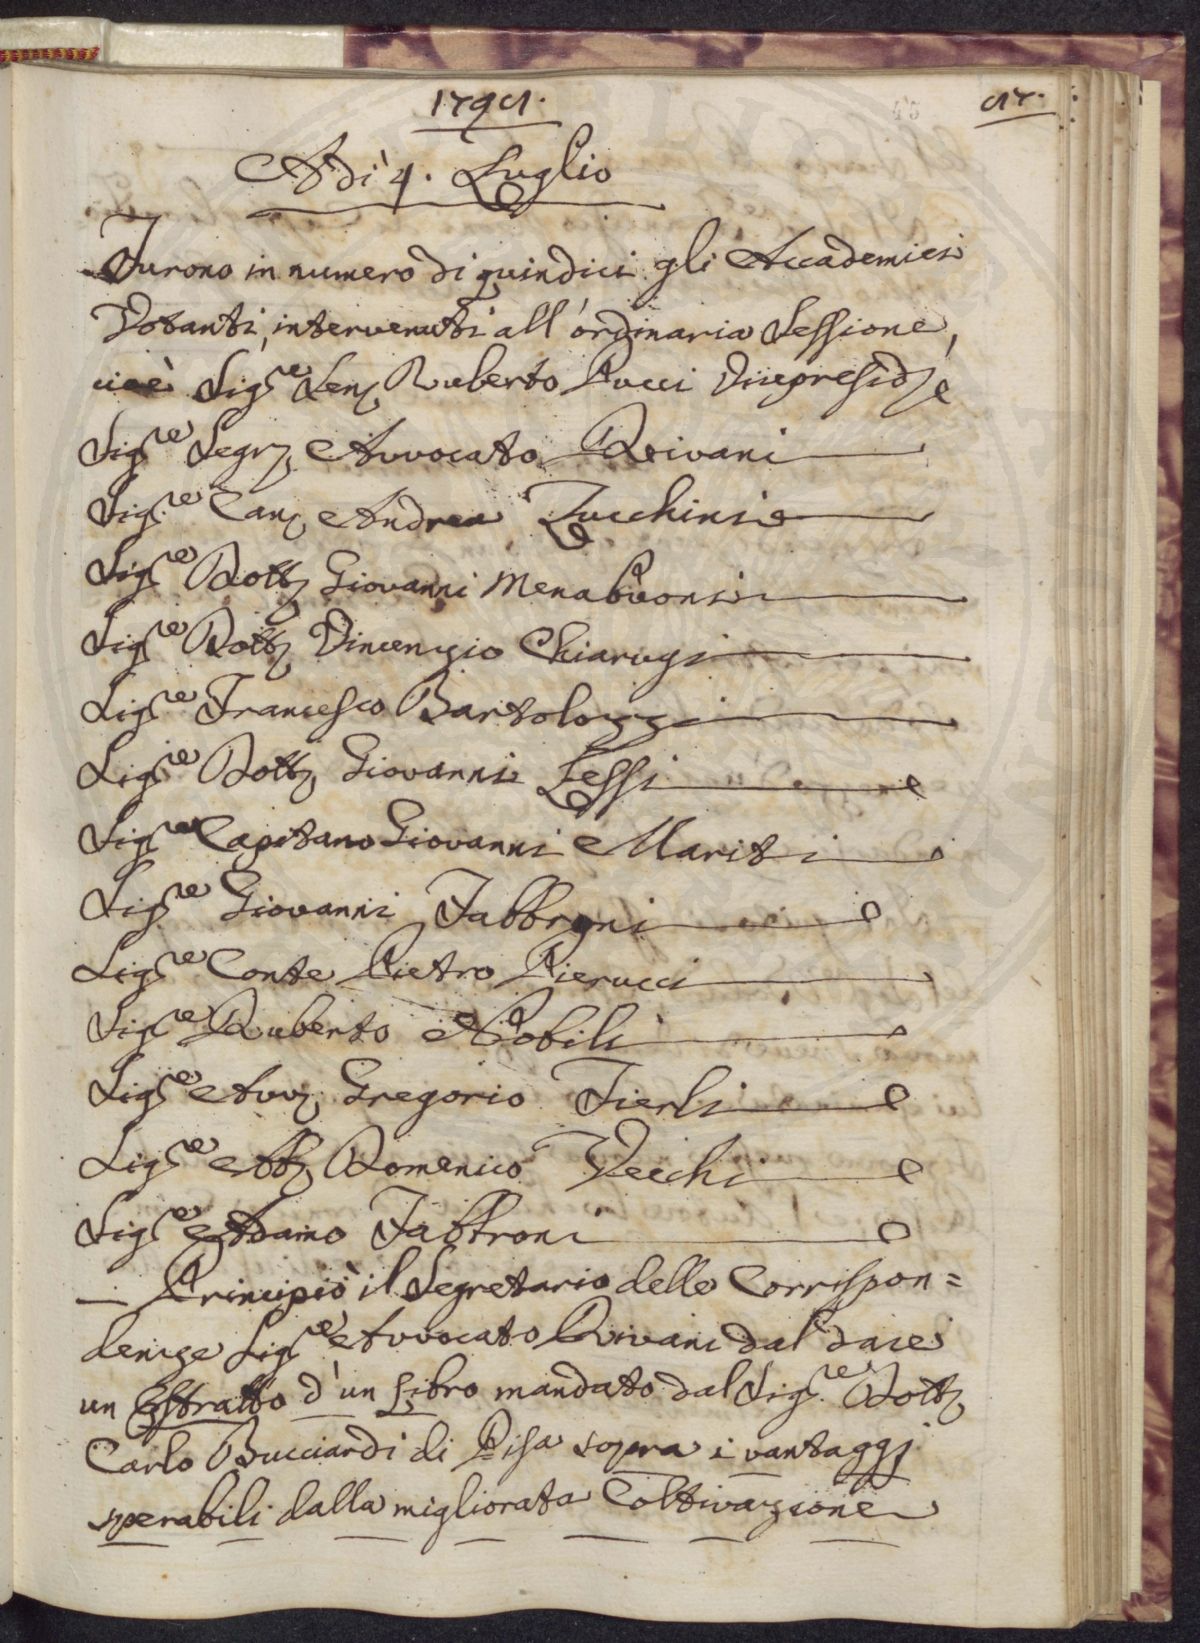 Adì 4. Luglio
Furono in numero di quindici gli Accademici
Votanti, intervenuti all'ordinaria Sessione,
cioè Sig.re Sen. Ruberto Pucci Vicepresid.e
Sig.re Segr. Avvocato Rivani
Sig.re Can. Andrea Zucchini
Sig.re Dott. Giovanni Menabuoni
Sig.re Dott. Vincenzio Chiarugi
Sig.re Francesco Bartolozzi
Sig.re Dott. Giovanni Lessi
Sig.re Capitano Giovanni Mariti
Sig.re Giovanni Fabbroni
Sig.re Conte Pietro Pierucci
Sig.re Ruberto Nobili
Sig.re Avv. Gregorio Fierli
Sig.re Abb. Domenico Vecchi
Sig.re Adamo Fabbroni
— Principiò il Segretario delle Corrispon=
denze Sig.re Avvocato Rivani dal dare
un Estratto d'un Libro mandato dal Sig.re Dott.
Carlo Bucciardi di Pisa sopra i vantaggi
sperabili dalla migliorata Coltivazione